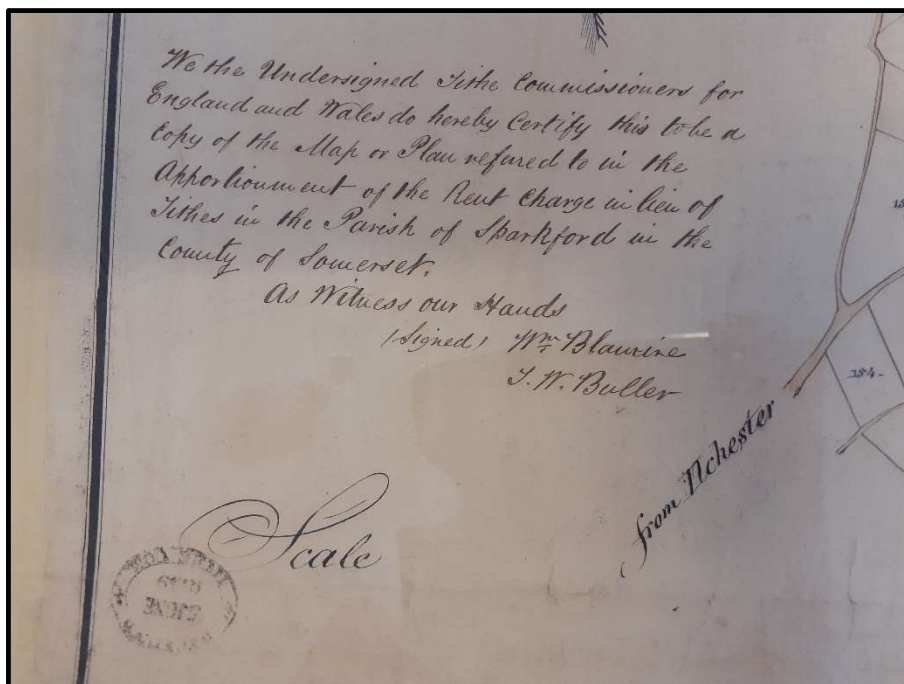 We the Undersigned Tithe Commissioners for
England and Wales do hereby Certify this to be a
Copy of the Map or Plan refured to in the
Apportionment of the Rent Charge in lieu of
Tithes in the Parish of Sparkford in the
County of Somerset.
As Witness our Hands
(Signed) Wm Blamire
T. W. Buller
from Ilchester
254
Scale
JUNE